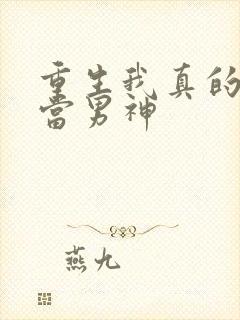 重生我真的
当男神
燕九